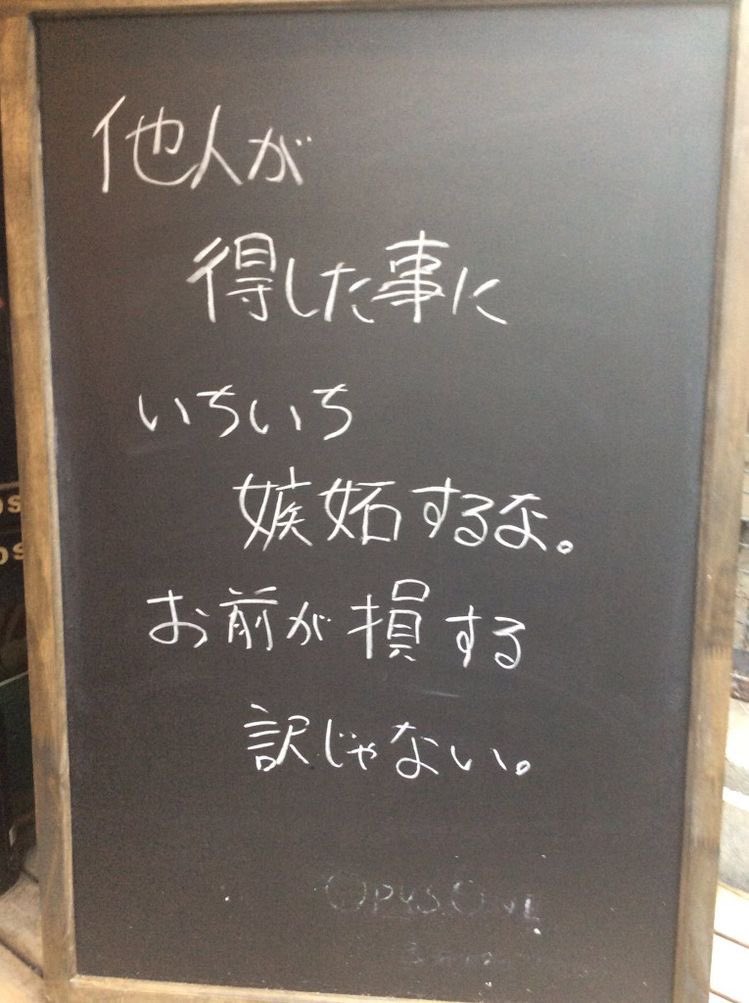 他人が
得した事に
いちいち
嫉妬するな。
お前が損する
訳じゃない。
OPUS ONE